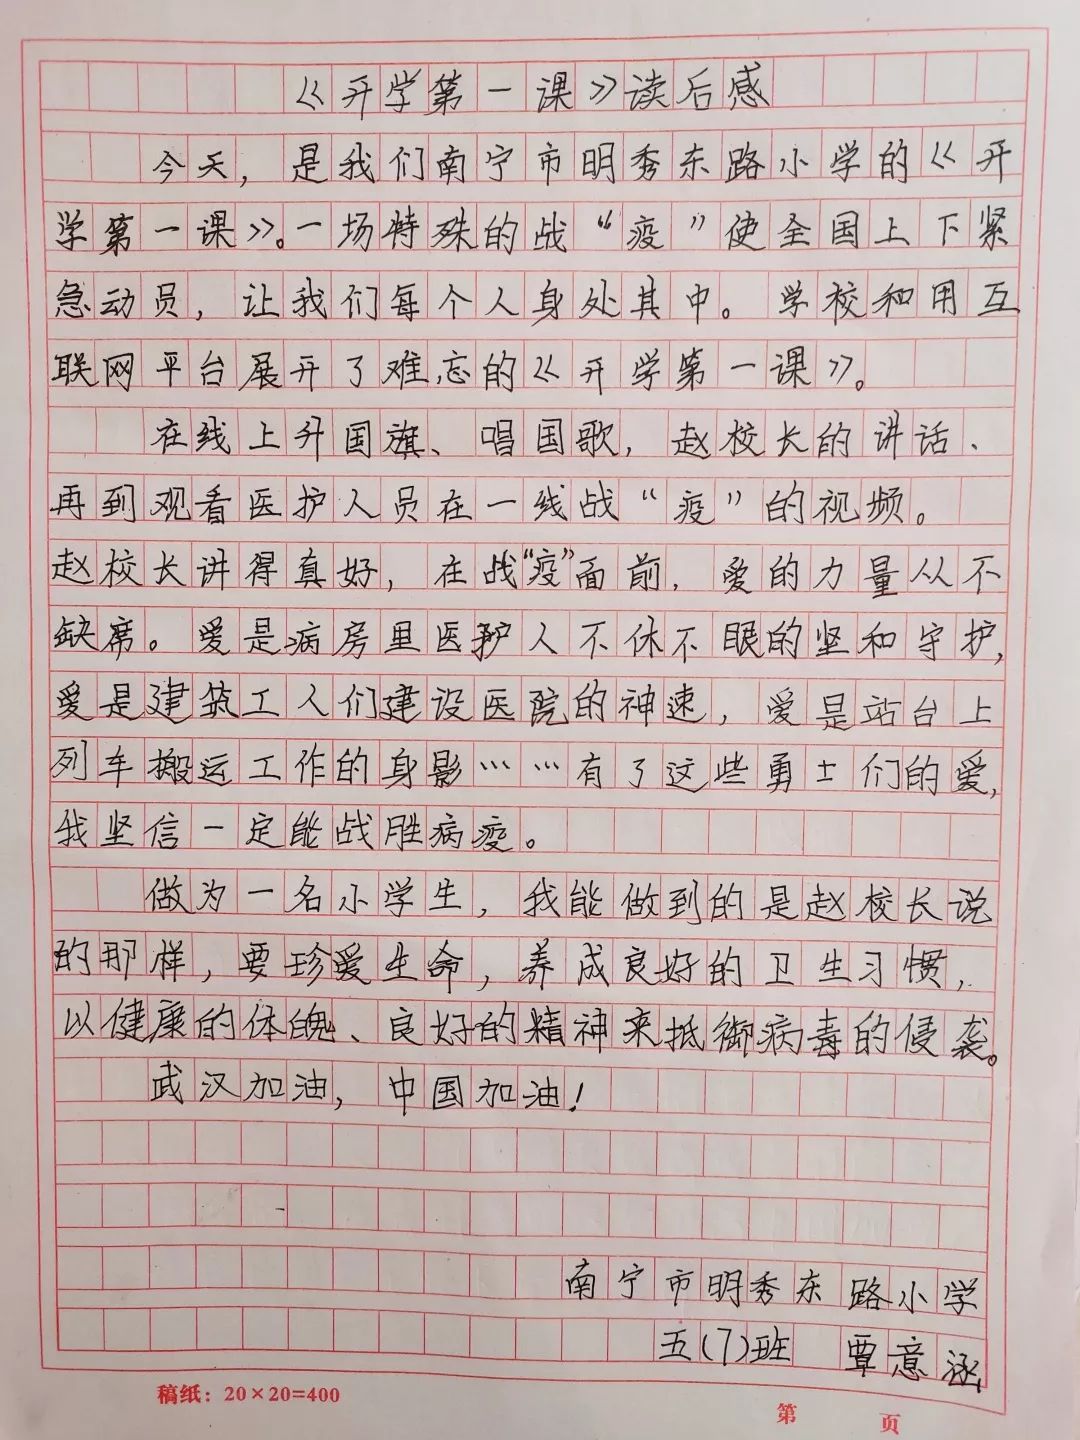 《开学第一课》读后感
今天，是我们南宁市明秀东路小学的《开
学第一课》。一场特殊的战“疫”使全国上下紧
急动员，让我们每个人身处其中。学校和用互
联网平台展开了难忘的《开学第一课》。
在线上升国旗、唱国歌，赵校长的讲话、
再到观看医护人员在一线战“疫”的视频。
赵校长讲得真好，在战“疫”面前，爱的力量从不
缺席。爱是病房里医护人不休不眠的坚和守护，
爱是建筑工人们建设医院的神速，爱是站台上
列车搬运工作的身影……有了这些勇士们的爱，
我坚信一定能战胜病疫。
做为一名小学生，我能做到的是赵校长说
的那样，要珍爱生命，养成良好的卫生习惯，
以健康的体魄、良好的精神来抵御病毒的侵袭。
武汉加油，中国加油！
南宁市明秀东路小学
五(7)班 覃意涵
稿纸：20×20=400
第 页